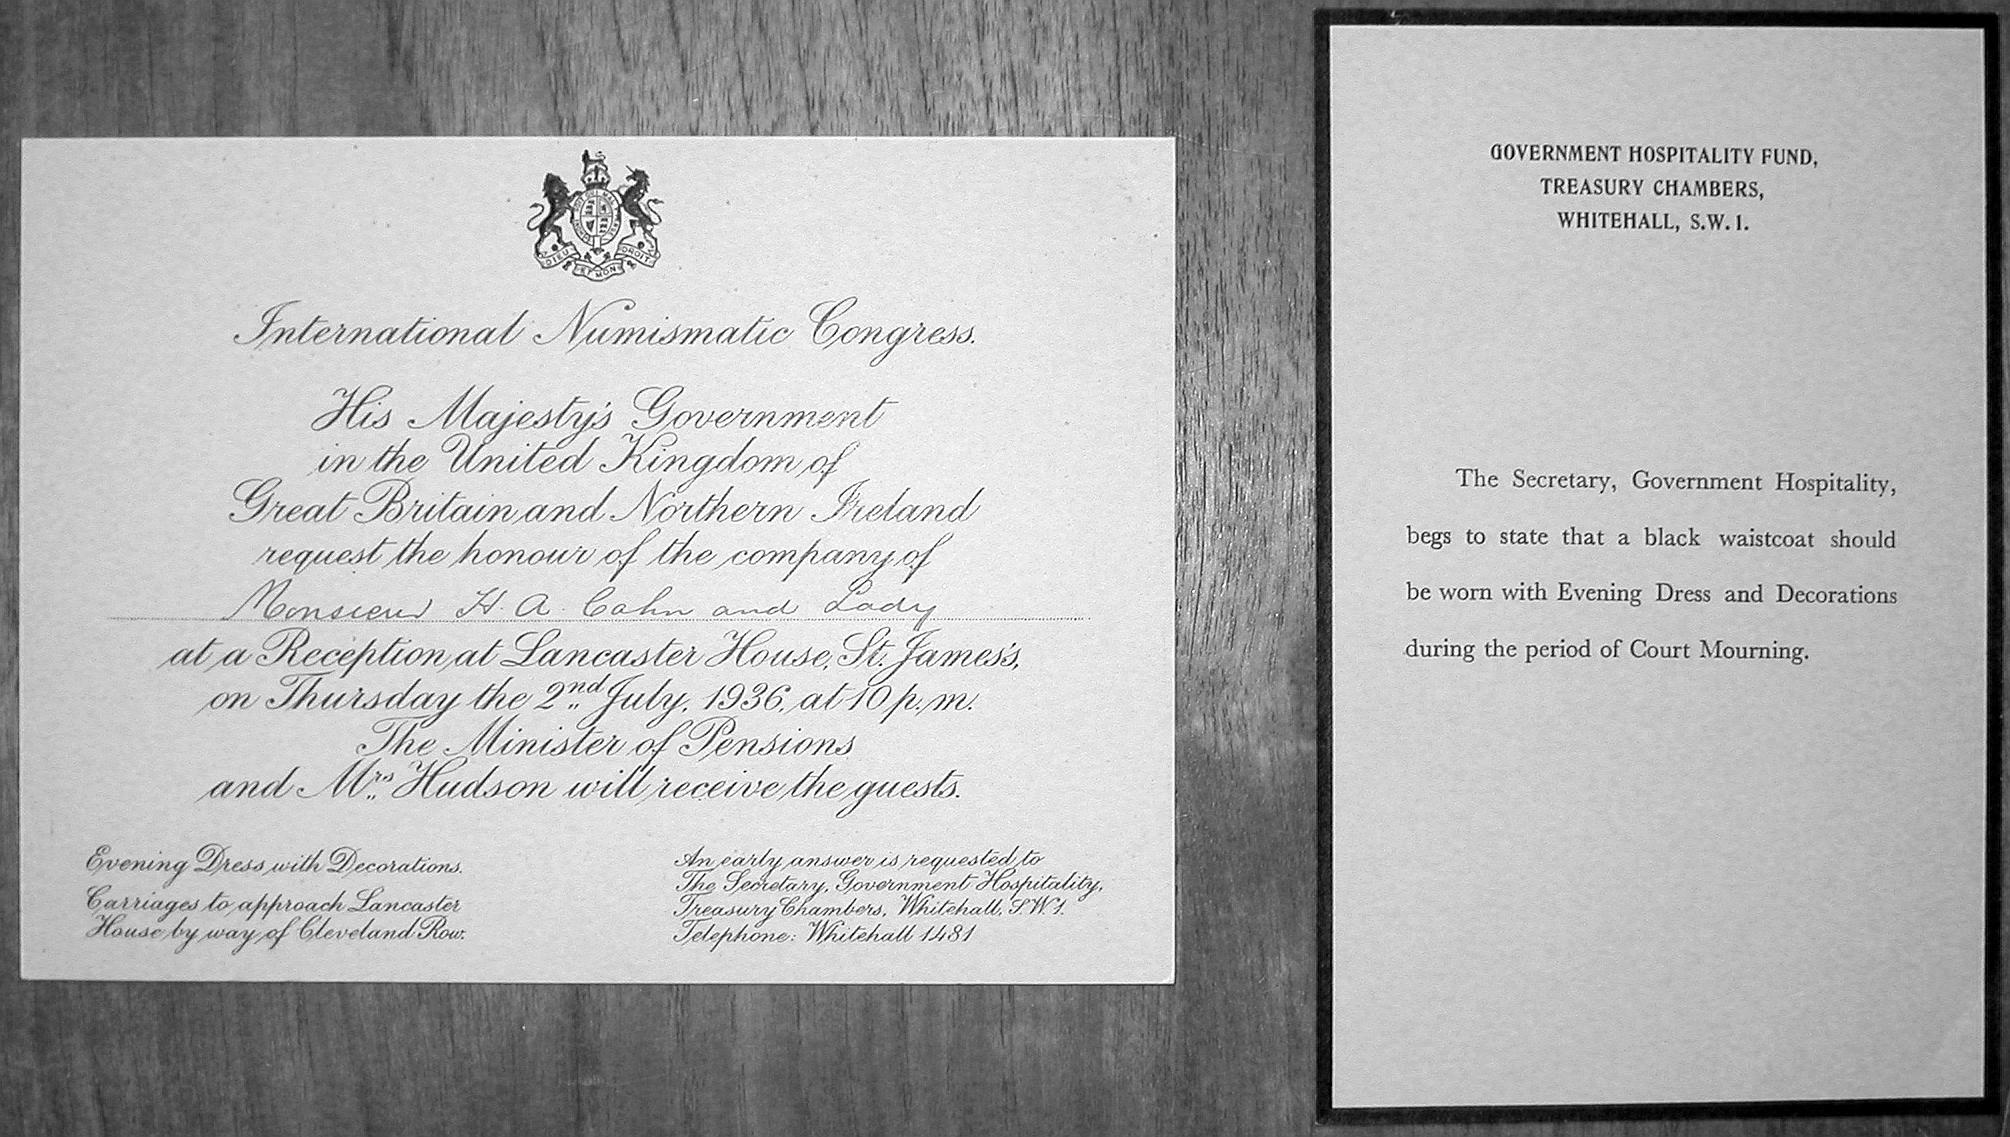 DIEU ET MON DROIT
International Numismatic Congress.
His Majesty's Government
in the United Kingdom of
Great Britain and Northern Ireland
request the honour of the company of
Monsieur H. A. Cahn and Lady
at a Reception at Lancaster House, St. James's,
on Thursday the 2nd July, 1936, at 10 p.m.
The Minister of Pensions
and Mrs Hudson will receive the guests.
Evening Dress with Decorations.
Carriages to approach Lancaster
House by way of Cleveland Row.
An early answer is requested to
The Secretary, Government Hospitality,
Treasury Chambers, Whitehall, S.W.1.
Telephone: Whitehall 1481
GOVERNMENT HOSPITALITY FUND,
TREASURY CHAMBERS,
WHITEHALL, S.W.1.
The Secretary, Government Hospitality,
begs to state that a black waistcoat should
be worn with Evening Dress and Decorations
during the period of Court Mourning.